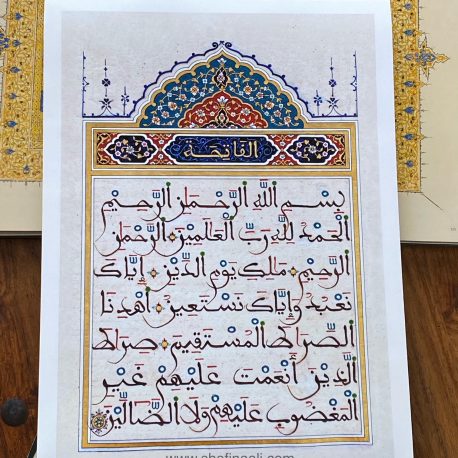 الفاتحة
بِسْمِ اللَّهِ الرَّحْمَٰنِ الرَّحِيمِ
الْحَمْدُ لِلَّهِ رَبِّ الْعَالَمِينَ الرَّحْمَٰنِ
الرَّحِيمِ مَلِكِ يَوْمِ الدِّينِ إِيَّاكَ
نَعْبُدُ وَإِيَّاكَ نَسْتَعِينُ اهْدِنَا
الصِّرَاطَ الْمُسْتَقِيمَ صِرَاطَ
الَّذِينَ أَنْعَمْتَ عَلَيْهِمْ غَيْرِ
الْمَغْضُوبِ عَلَيْهِمْ وَلَا الضَّالِّينَ